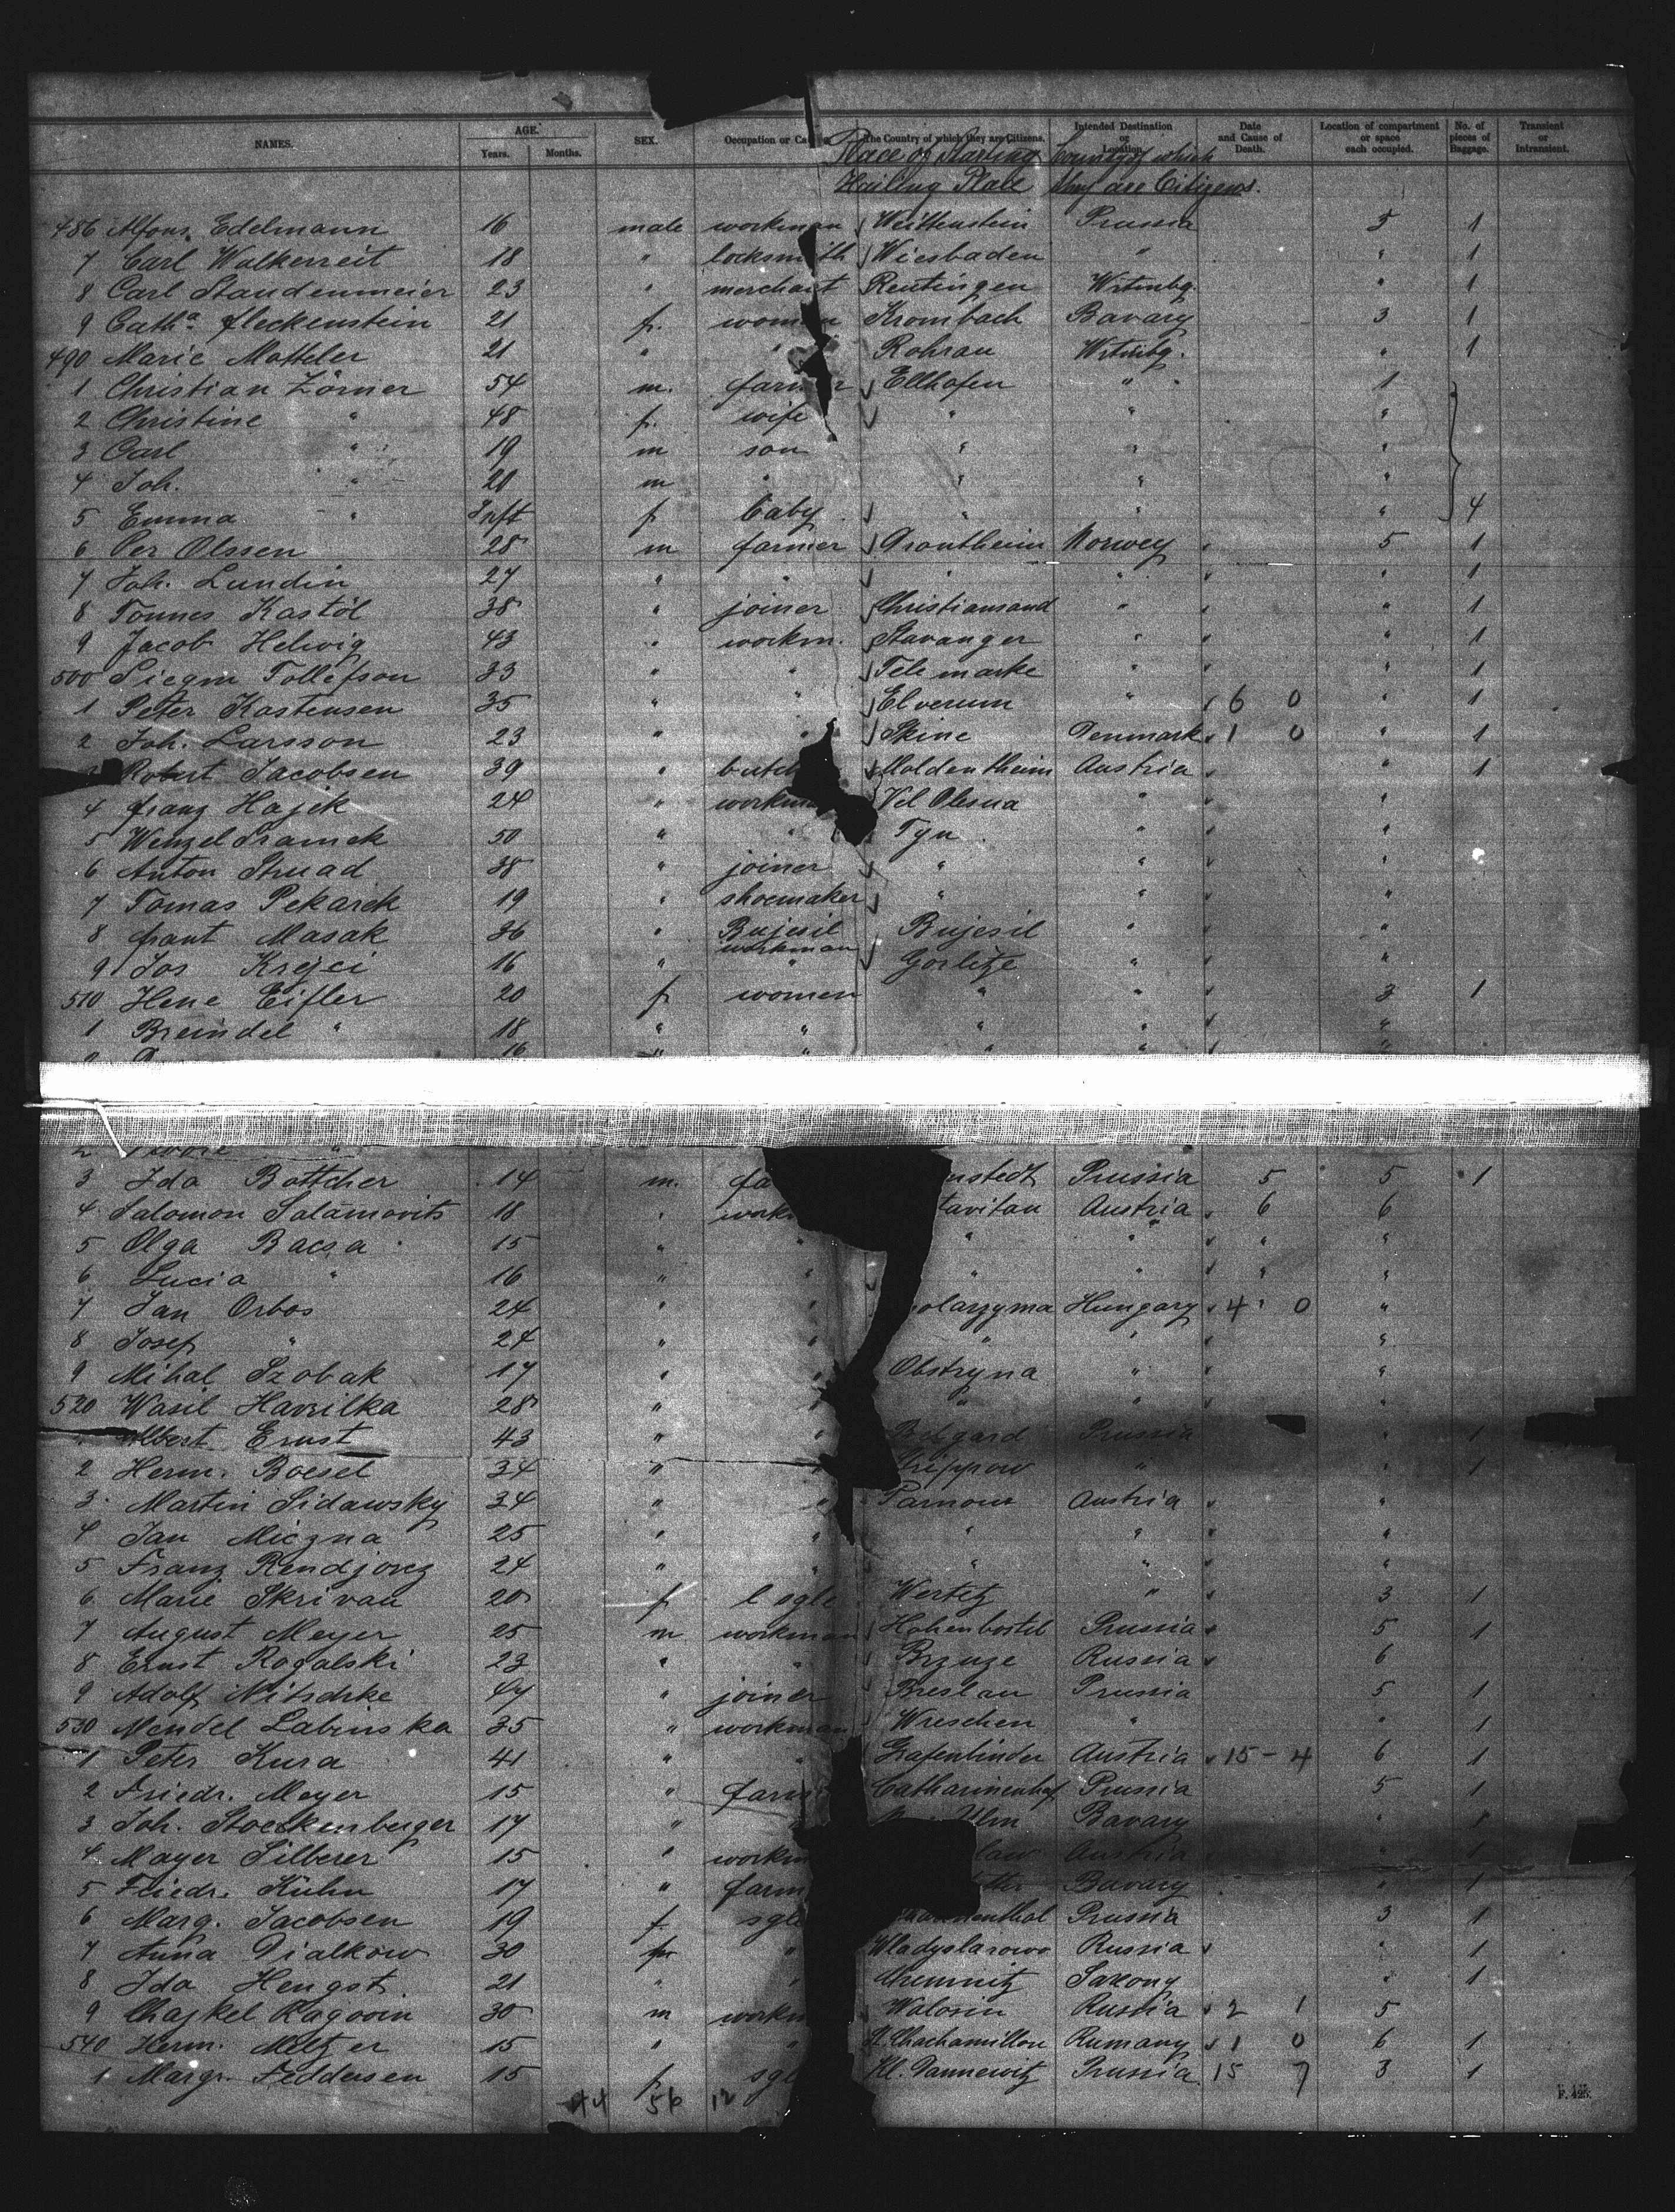 NAMES. AGE. Years. Months. SEX. Occupation or Ca The Country of which they are Citizens. Intended Destination or Location. Date and Cause of Death. Location of compartment or space each occupied. No. of pieces of Baggage. Transient or Intransient.
Place of Starting Country of which
Hailing Place they are Citizens.
486 Alfons Edelmann 16 male workman Weittenstein Prussia 5 1
7 Carl Walkerreit 18 " locksmith Wiesbaden " " 1
8 Carl Staudenmeier 23 " merchant Reutingen Wrtmbg. " 1
9 Catha. Fleckenstein 21 f. women Krombach Bavary 3 1
490 Marie Matteler 21 " " Rohrau Wrtmbg. " 1
1 Christian Zörner 54 m. farmer Ellhofen " 1
2 Christine " 48 f. wife " " "
3 Carl " 19 m son " " "
4 Joh. " 20 m " " " "
5 Emma " Inft f baby " " " 4
6 Per Olssen 28 m farmer Drontheim Norwey 5 1
7 Joh. Lundin 27 " " " " " 1
8 Tonnes Kastöl 38 " joiner Christiansand " " 1
9 Jacob Helwig 43 " workm. Stavanger " " 1
500 Siegm Tollefson 33 " " Telemarke " " 1
1 Peter Kastensen 35 " " Elverum " 6 0 " 1
2 Joh. Larsson 23 " " Skine Denmark 1 0 " 1
Robert Jacobsen 39 " butch Moldentheim Austria " 1
4 Franz Hajek 24 " workman Vel Olesna " "
5 Wenzel Sramek 50 " " Tyn " "
6 Anton Struad 38 " joiner " " "
7 Tomas Pekarek 19 " shoemaker " " "
8 Frant Masak 36 " Bujesil workman Bujesil " "
9 Jos Krejci 16 " " Gorlitze " "
510 Hene Eifler 20 f women " " 3 1
1 Breindel " 18 " " " " "
16 " " " " "
3 Ida Bottcher 14 m. fa nstedt Prussia 5 5 1
4 Salomon Salamovits 18 " work tavitan Austria 6 6
5 Olga Bacsa 15 " " " " " "
6 Lucia " 16 " " " " " "
7 Jan Orbos 24 " " olarzyma Hungary 4 0 "
8 Josef " 24 " " " " "
9 Mihal Szobak 17 " " Obstryna " "
520 Wasil Havrilka 28 " " " " "
Albert Ernst 43 " " Belgard Prussia " 1
2 Herm. Boesel 34 " " " " 1
3 Martin Sidawsky 34 " " Tarnow Austria "
4 Jan Miczna 25 " " " " "
5 Franz Rendjorcz 24 " " " " "
6 Marie Skrivan 20 f sgle Wertetz " 3 1
7 August Meyer 25 m workman Hohenbostel Prussia 5 1
8 Ernst Rogalski 23 " " Brzuze Russia 6
9 Adolf Nitschke 47 " joiner Breslau Prussia 5 1
530 Mendel Labinska 35 " workman Wreschen " " 1
1 Peter Kura 41 " " Grafenlinder Austria 15-4 6 1
2 Friedr. Meyer 15 " farm Catharinenhof Prussia 5 1
3 Joh. Stoeckenberger 17 " " Ulm Bavary " 1
4 Mayer Silberer 15 " workm law Austria " 1
5 Friedr. Kuhn 17 " farm Bavary " 1
6 Marg. Jacobsen 19 f sgle enthal Prussia 3 1
7 Anna Dialkow 30 " Wladyslarowo Russia " 1
8 Ida Hengst 21 " " Chemnitz Saxony " 1
9 Chajkel Ragowin 30 m workm Walosin Russia 2 1 5
540 Herm. Meltzer 15 " " Rumany 1 0 6 1
1 Margr. Feddersen 15 f sgl Kl. Dannewitz Prussia 15 7 3 1
44 56 12
F. 425.